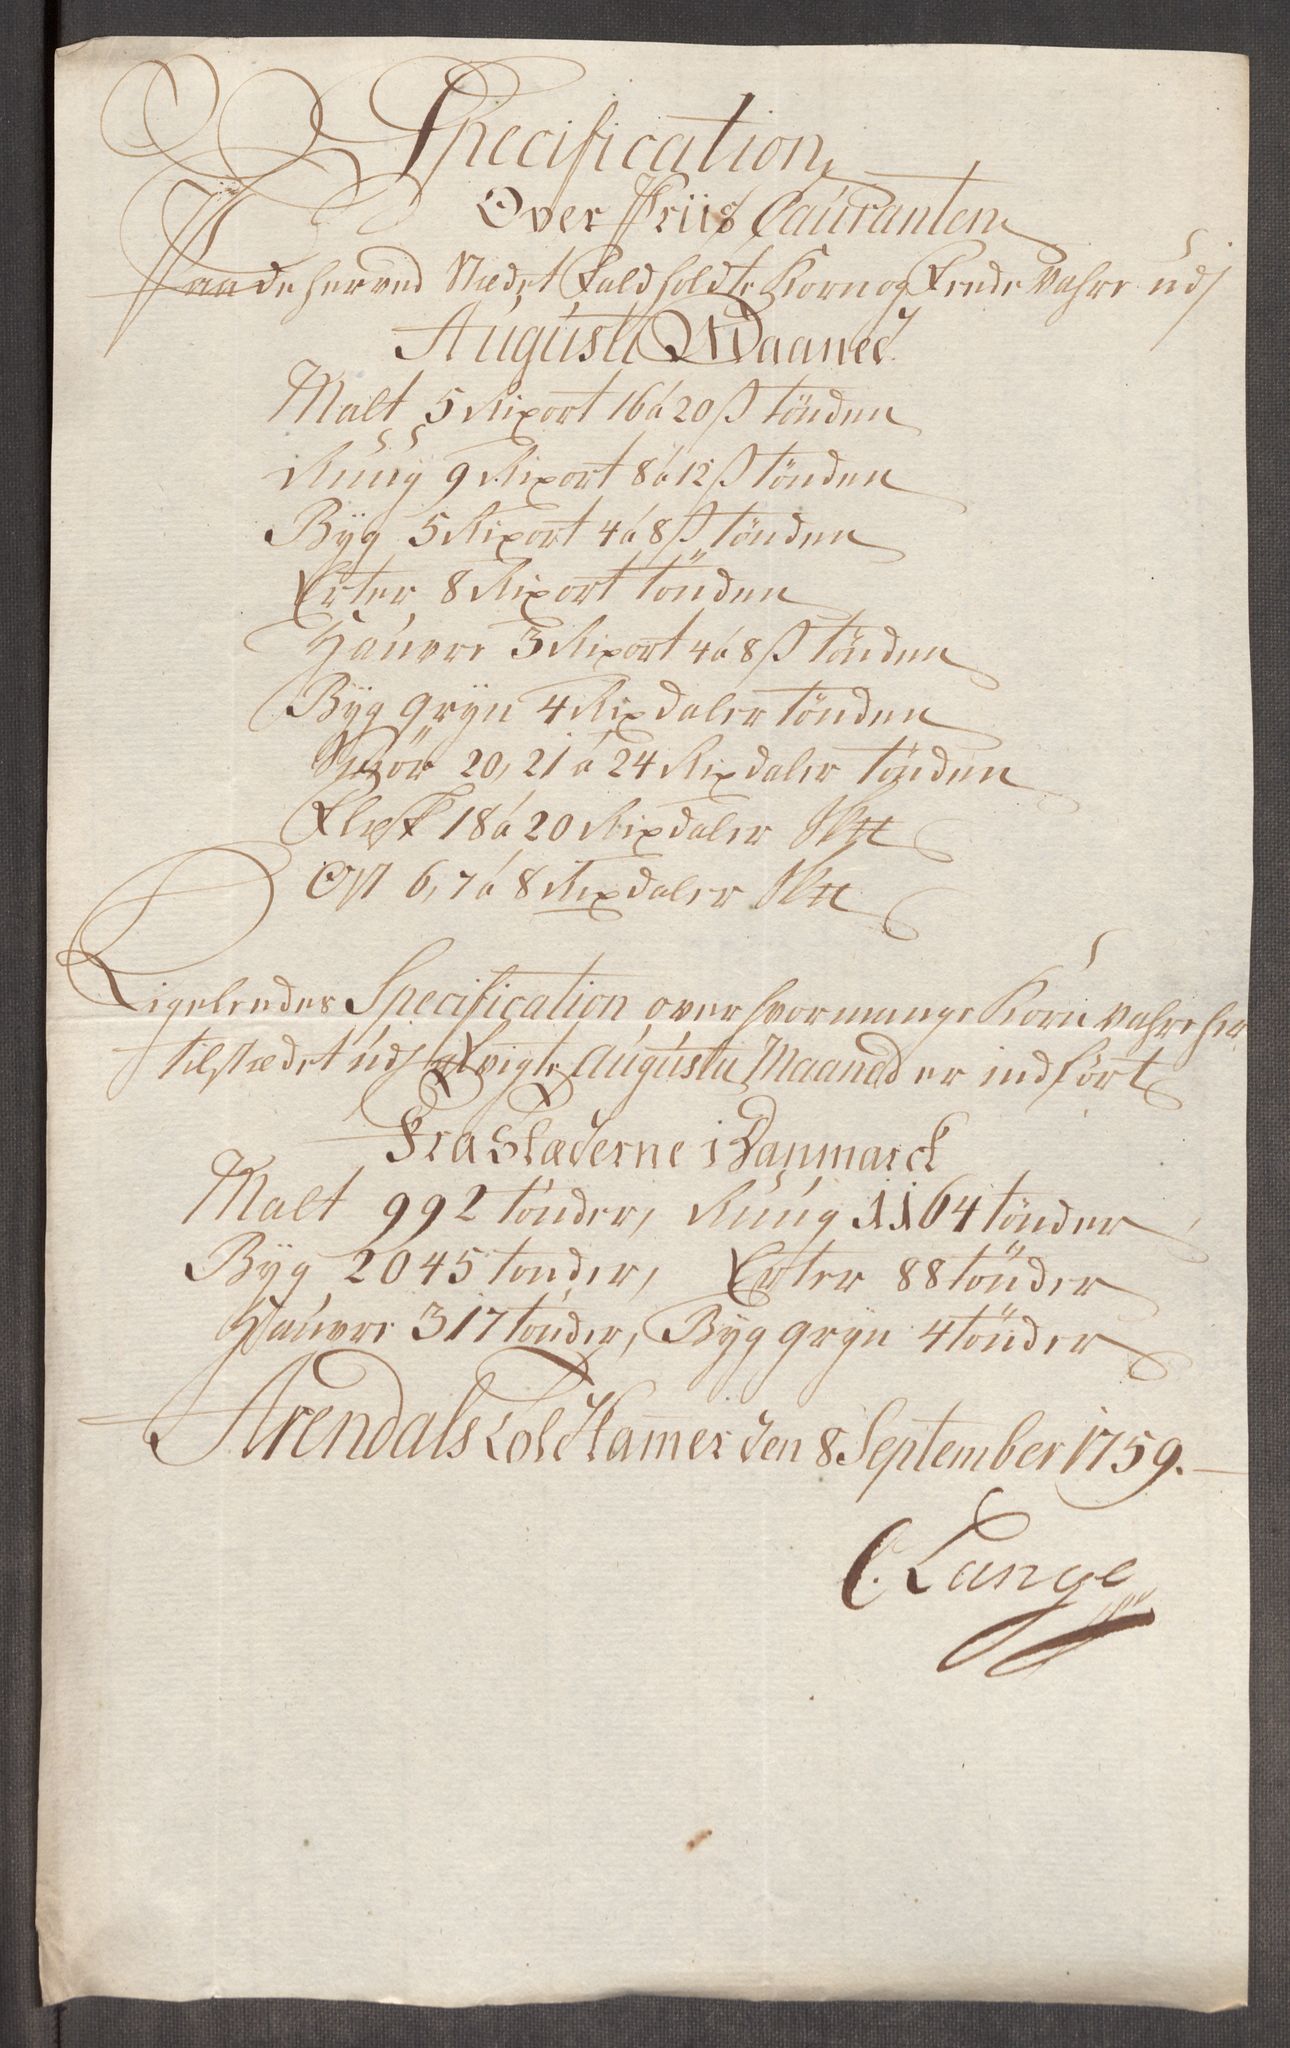 Specification
Over Priis Couranten
Paa de her ved Stædet Faldholdte Korn og Fede Vahre udj
Augusti Maaned.
Malt 5 Rixort 16 à 20 ß tönden
Rúúg 9 Rixort 8 à 12 ß tönden
Byg 5 Rixort 4 à 8 ß tönden
Erter 8 Rixort tönden
Haúvre 3 Rixort 4 à 8 ß tönden
Byg gryn 4 Rixdaler tönden
Smör 20, 21 à 24 Rixdaler tönden
Flesk 18 à 20 Rixdaler Sk℔
Ost 6, 7 à 8 Rixdaler Sk℔
Ligeledes Specification over hvormange Korn vahre her
til stædet udj Augusti Maaned er indført
Fra Stæderne i Danmarck
Malt 992 tönder, Rúúg 1164 tönder
Byg 2045 tönder, Erter 88 tönder
Haúvre 317 tönder, Byg gryn 4 tönder
Arendals Told Kamer den 8 September 1759.
C. Lange